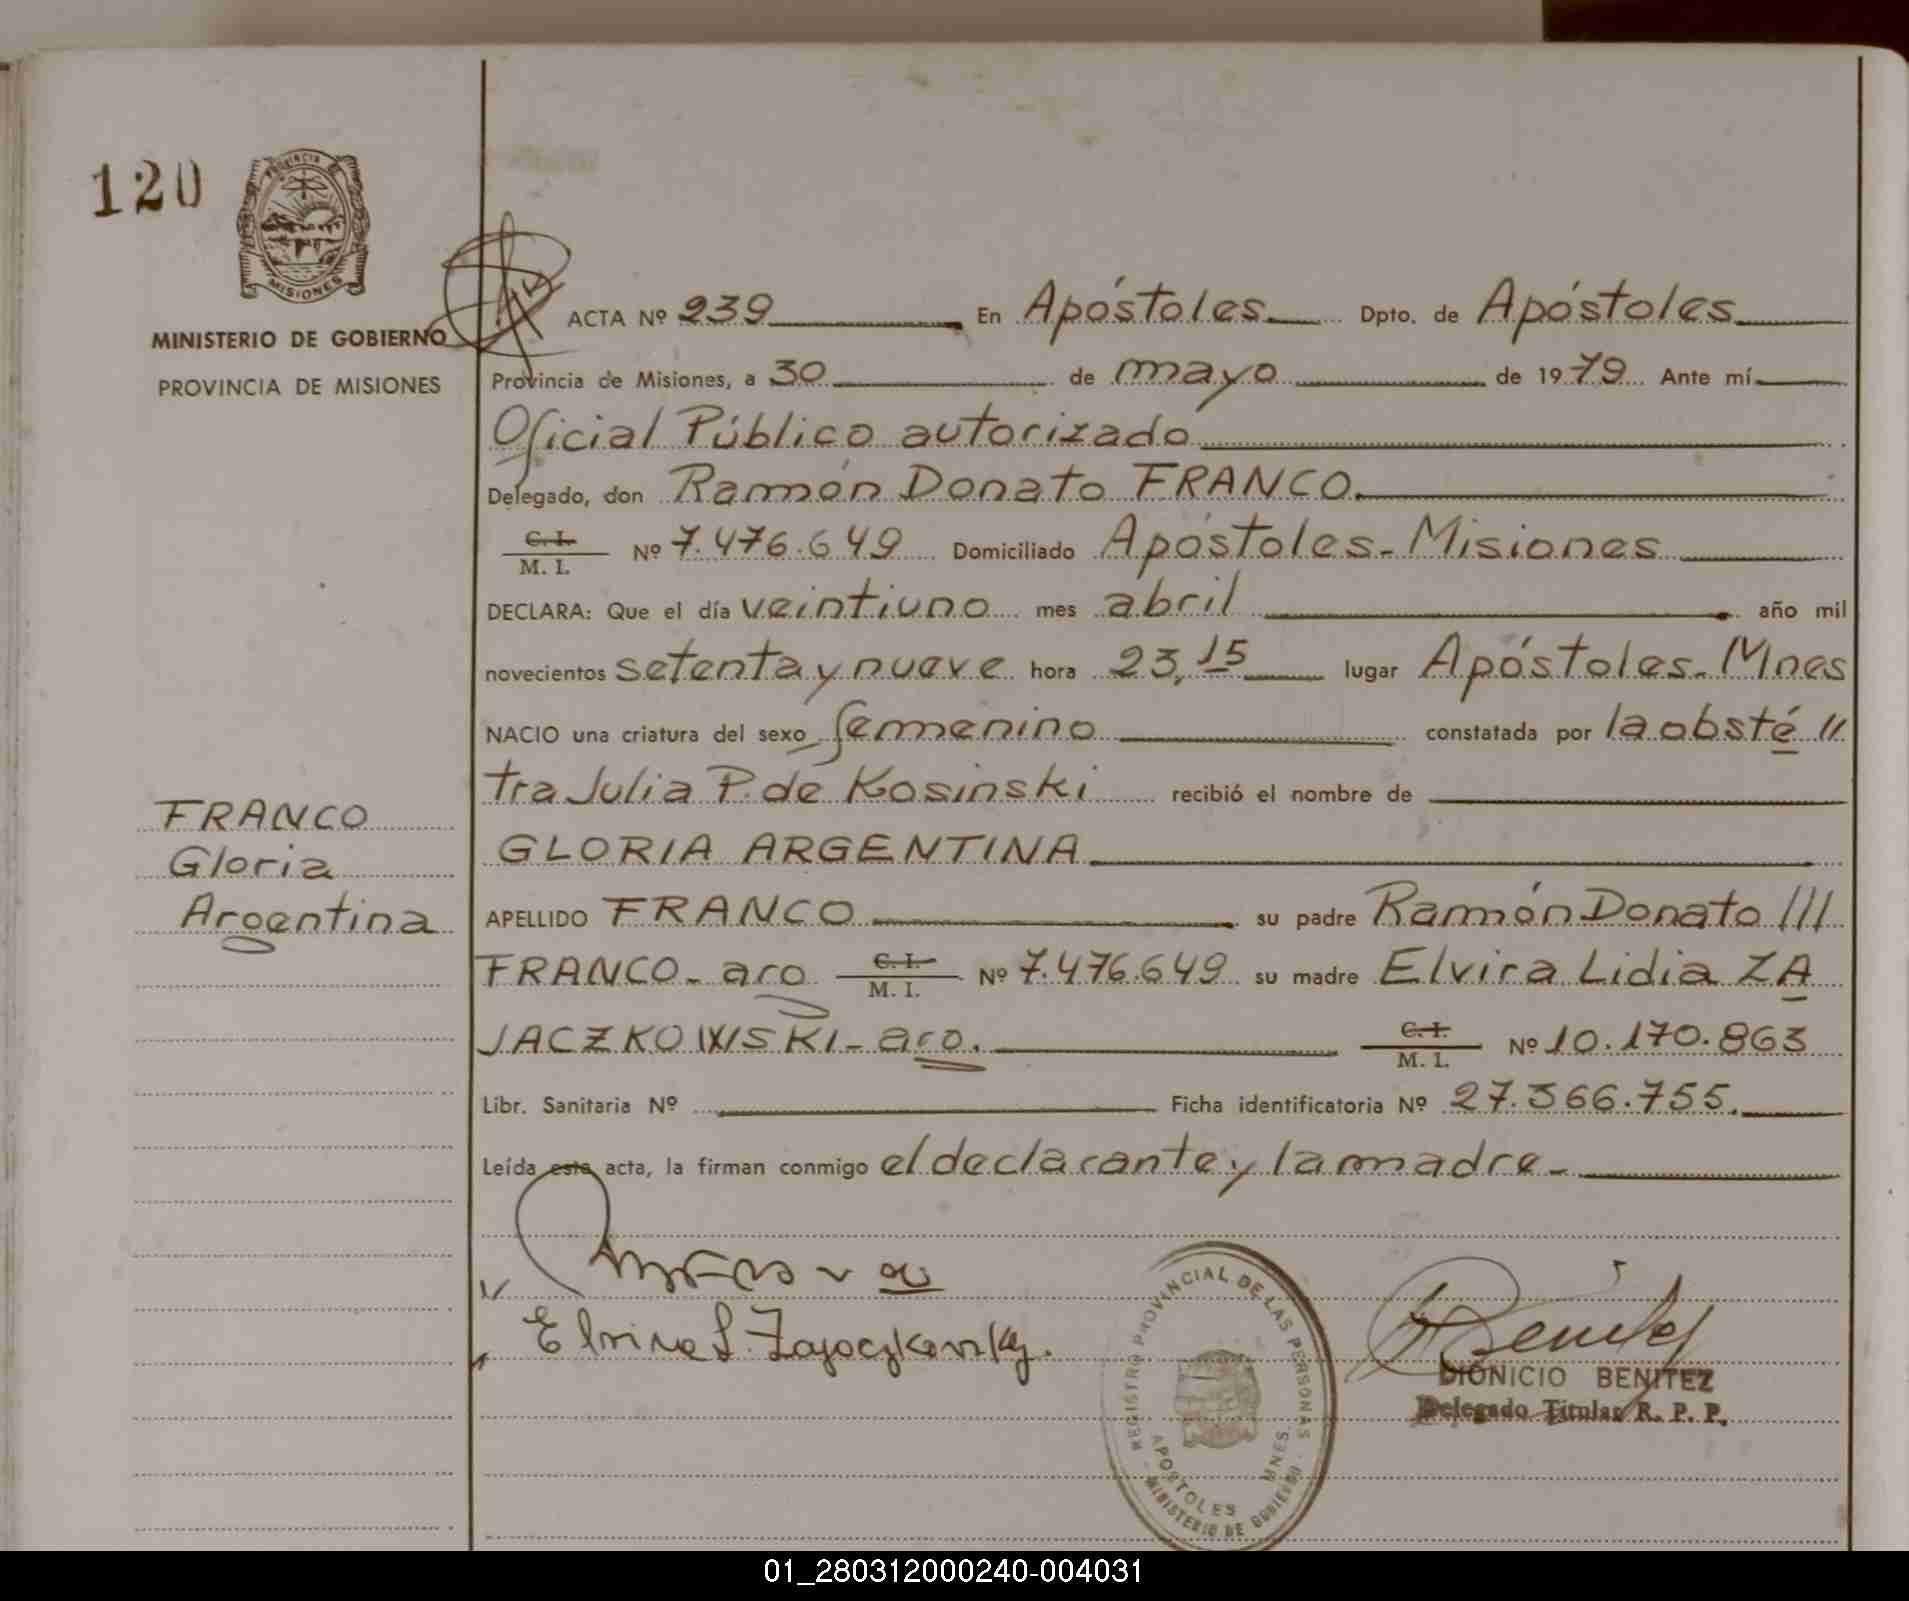 120
PROVINCIA DE
MISIONES
MINISTERIO DE GOBIERNO
PROVINCIA DE MISIONES
ACTA Nº 239 En Apóstoles Dpto. de Apóstoles
Provincia de Misiones, a 30 de mayo de 1979 Ante mí
Oficial Público autorizado
Delegado, don Ramón Donato FRANCO.
C. I. M. I. Nº 7.476.649 Domiciliado Apóstoles - Misiones
DECLARA: Que el día veintiuno mes abril año mil
novecientos setenta y nueve hora 23,15 lugar Apóstoles - Mnes
NACIO una criatura del sexo femenino constatada por la obsté //
tra Julia P. de Kosinski recibió el nombre de
GLORIA ARGENTINA
APELLIDO FRANCO su padre Ramón Donato ///
FRANCO - aro C. I. M. I. Nº 7.476.649 su madre Elvira Lidia ZA
JACZKOWSKI - aro. C. I. M. I. Nº 10.170.863
Libr. Sanitaria Nº Ficha identificatoria Nº 27.366.755.
Leída esta acta, la firman conmigo el declarante y la madre -
FRANCO
Gloria
Argentina
Elvira L. Zajaczkowsky.
REGISTRO PROVINCIAL DE LAS PERSONAS
APOSTOLES MNES.
MINISTERIO DE GOBIERNO
Benitez
DIONICIO BENITEZ
Delegado Titular R. P. P.
01_280312000240-004031